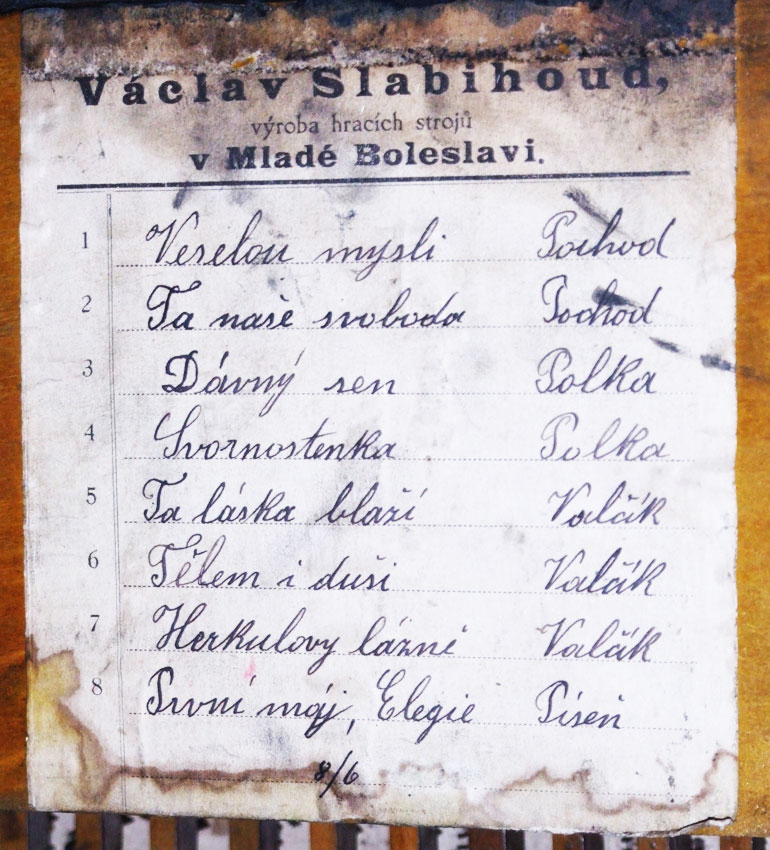 Václav Slabihoud,
výroba hracích strojů
v Mladé Boleslavi.
1 Veselou mysli Pochod
2 Ta naše svoboda Pochod
3 Dávný sen Polka
4 Svornostenka Polka
5 Ta láska blaží Valčík
6 Tělem i duši Valčík
7 Herkulovy lázně Valčík
8 První máj, Elegie Píseň
8/6